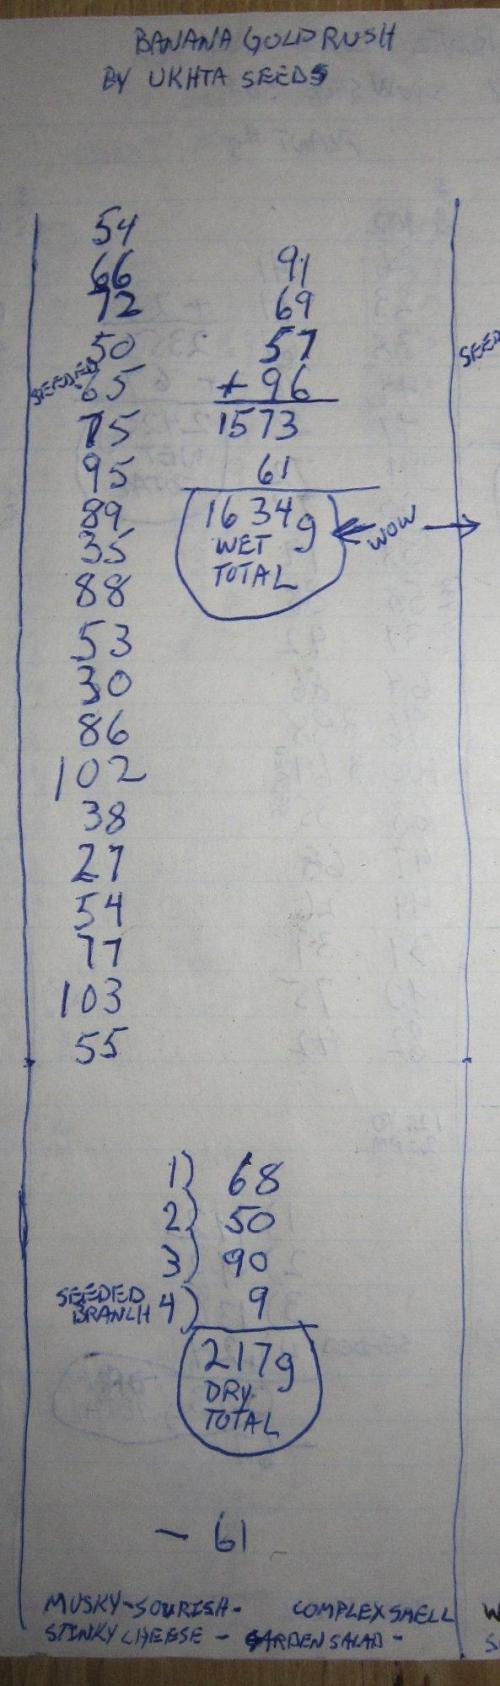 BANANA GOLD RUSH
BY UKHTA SEEDS
54
66
72
50
SEEDED 65
75
95
89
35
88
53
30
86
102
38
27
54
77
103
55
91
69
57
+ 96
1573
61
1634g
WET
TOTAL
WOW
SEED
1) 68
2) 50
3) 90
SEEDED
BRANCH 4) 9
217g
DRY
TOTAL
- 61
MUSKY-SOURISH- COMPLEX SMELL
STINKY CHEESE - GARDEN SALAD -